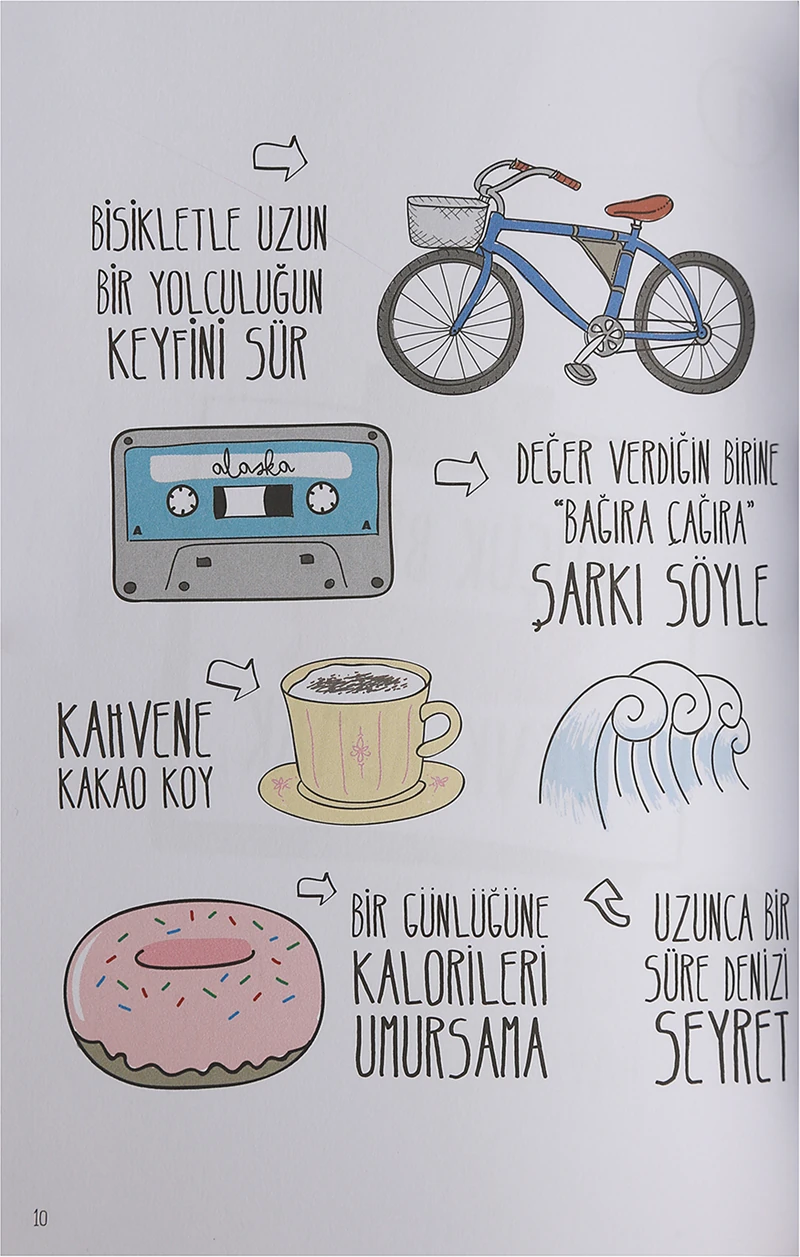 BİSİKLETLE UZUN
BİR YOLCULUĞUN
KEYFİNİ SÜR
alaska
DEĞER VERDİĞİN BİRİNE
“BAĞIRA ÇAĞIRA”
ŞARKI SÖYLE
KAHVENE
KAKAO KOY
BİR GÜNLÜĞÜNE
KALORİLERİ
UMURSAMA
UZUNCA BİR
SÜRE DENİZİ
SEYRET
10